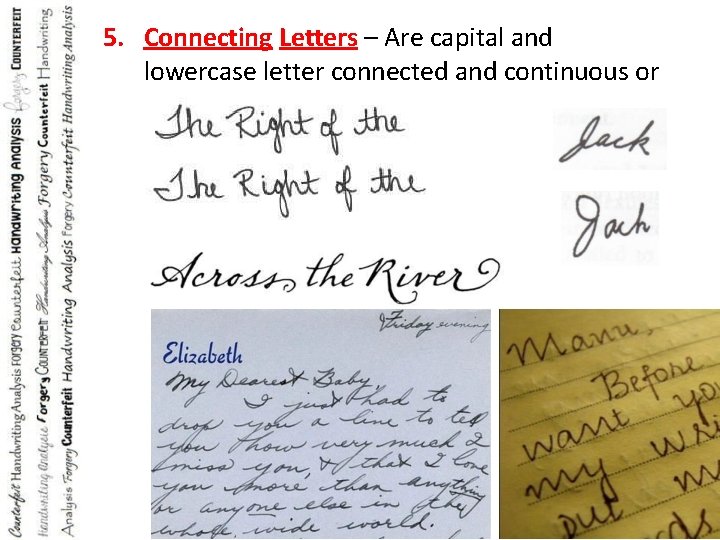 5. Connecting Letters – Are capital and
lowercase letter connected and continuous or
The Right of the
The Right of the
Jack
Jack
Across the River
Friday evening
Elizabeth
My Dearest Baby,
I just had to
drop you a line to tell
you how very much I
miss you, & that I love
you more than anything
or anyone else in the
whole, wide world.
Manu,
Before
want yo
my wri
out m
rds
Counterfeit Handwriting Analysis Forgery Counterfeit Handwriting Analysis Forgery Counterfeit
Handwriting Analysis Forgery Counterfeit Handwriting Analysis Forgery Counterfeit Handwriting
Analysis Forgery Counterfeit Handwriting Analysis Forgery Counterfeit Handwriting Analysis